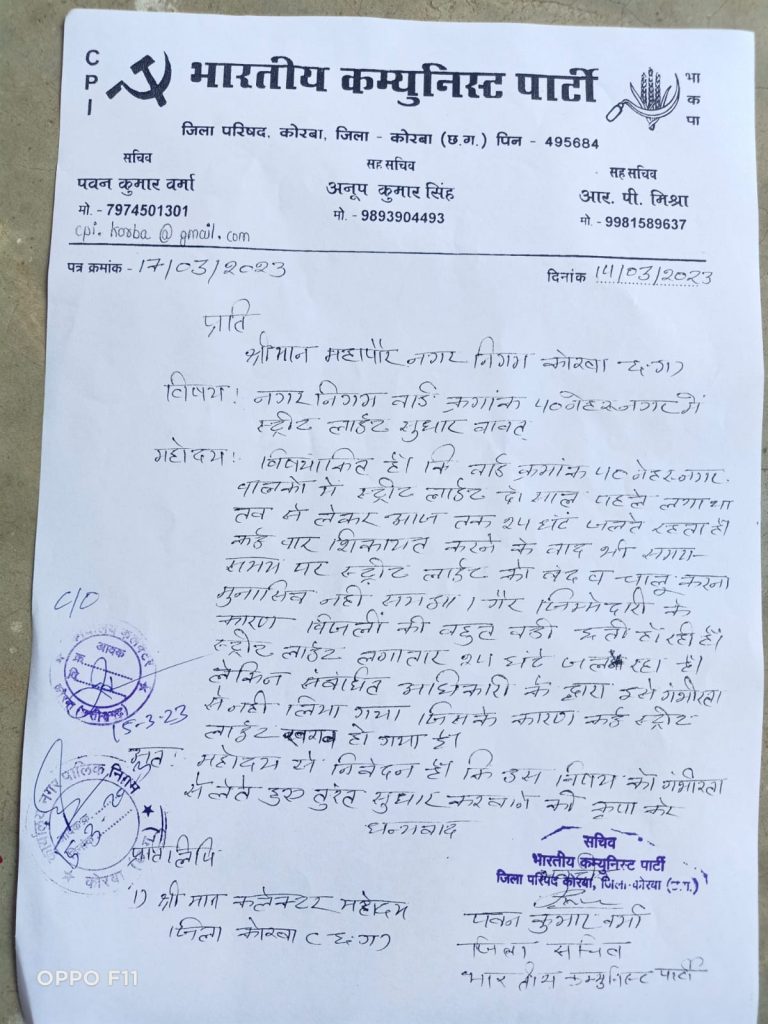 CPI
भारतीय कम्युनिस्ट पार्टी
भाकपा
जिला परिषद, कोरबा, जिला - कोरबा (छ.ग.) पिन - 495684
सचिव
पवन कुमार वर्मा
मो. - 7974501301
cpi.korba@gmail.com
सह सचिव
अनूप कुमार सिंह
मो. - 9893904493
सह सचिव
आर. पी. मिश्रा
मो. - 9981589637
पत्र क्रमांक - 17/03/2023
दिनांक 14/03/2023
प्रति
श्रीमान महापौर नगर निगम कोरबा (छ.ग)
विषय: नगर निगम वार्ड क्रमांक 40 नेहरू नगर में
स्ट्रीट लाईट सुधार बावत्
महोदय: विषयांकित है। कि वार्ड क्रमांक 40 नेहरू नगर
में स्ट्रीट लाईट दो साल पहले लगा था
तब से लेकर आज तक 24 घंटे जलते रहता है।
कई बार शिकायत करने के बाद भी समय-
समय पर स्ट्रीट लाईट को बंद व चालू करना
मुनासिब नही समझा। गैर जिम्मेदारी के
कारण बिजली की बहुत बडी छती हो रही है।
स्ट्रीट लाईट लगातार 24 घंटे जल रहा है।
लेकिन संबंधित अधिकारी के द्वारा इसे गंभीरता
से नही लिया गया जिसके कारण कई स्ट्रीट
लाईट खराब हो गया है।
अतः महोदय से निवेदन है। कि इस विषय को गंभीरता
से लेते हुए तुरंत सुधार करवाने की कृपा करे
धन्यवाद
C/O
आवक
15-3-23
कार्यालय नगर पालिक निगम
कोरबा
सचिव
भारतीय कम्युनिस्ट पार्टी
जिला परिषद कोरबा, जिला-कोरबा (छ.ग.)
पवन कुमार वर्मा
जिला सचिव
भारतीय कम्युनिस्ट पार्टी
प्रतिलिपि
1) श्री मान कलेक्टर महोदय
जिला कोरबा (छ.ग)
OPPO F11